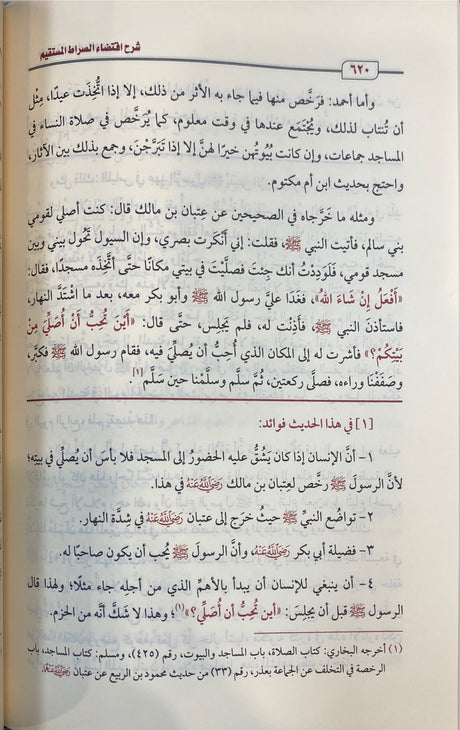 شرح اقتضاء الصراط المستقيم
٦٢٠
وأما أحمد: فرَخَّص منها فيما جاء به الأثر من ذلك، إلا إذا اتُّخِذَت عيدًا، مِثْل
أن تُنتاب لذلك، ويُجْتَمَع عندها في وقت معلوم، كما يُرَخَّص في صلاة النساء في
المساجد جماعات، وإن كانت بُيُوتُهن خيرًا لهنَّ إلا إذا تَبَرَّجْنَ، وجمع بذلك بين الآثار،
واحتج بحديث ابن أم مكتوم.
ومثله ما خَرَّجاه في الصحيحين عن عِتبان بن مالك قال: كنت أصلي لقومي
بني سالم، فأتيت النبي ﷺ، فقلت: إني أَنْكَرت بصري، وإن السيول تَحُول بيني وبين
مسجد قومي، فَلَوَدِدْتُ أنك جِئتَ فصلَّيْتَ في بيتي مكانًا حتَّى أتَّخذه مسجدًا، فقال:
«أَفْعَلُ إِنْ شَاءَ اللهُ»، فغَدَا عليَّ رسول الله ﷺ وأبو بكر معه، بعد ما اشْتَدَّ النهار،
فاستأذنَ النبي ﷺ، فأذِنْت له، فلم يَجلِس، حتَّى قال: «أَيْنَ تُحِبُّ أَنْ أُصَلِّيَ مِنْ
بَيْتِكُمْ؟» فأشرت له إلى المكان الذي أُحِبُّ أن يُصلِّيَ فيه، فقام رسول الله ﷺ فكبَّر،
وصَفَفْنَا وراءه، فصلَّى ركعتين، ثُمَّ سلَّم وسلَّمْنا حين سَلَّم[١].
[١] في هذا الحديث فوائد:
١- أنَّ الإنسان إذا كان يَشُقُّ عليه الحضورُ إلى المسجد فلا بأسَ أن يُصلِّيَ في بيته؛
لأنَّ الرسولَ ﷺ رخَّص لعِتبان بن مالك رَضِيَ اللهُ عَنْهُ في هذا.
٢- تواضُع النبيِّ ﷺ حيثُ خرَج إلى عتبان رَضِيَ اللهُ عَنْهُ في شِدَّة النهار.
٣- فضيلة أبي بكر رَضِيَ اللهُ عَنْهُ، وأنَّ الرسولَ ﷺ يُحِب أن يكون صاحبًا له.
٤- أن ينبغي للإنسان أن يبدأ بالأهمِّ الذي من أجلِه جاء مثلًا؛ ولهذا قال
الرسول ﷺ قبل أن يجلِسَ: «أين تُحِبُّ أن أُصلِّي؟»(١)؛ وهذا لا شَكَّ أنَّه من الحزم.
(١) أخرجه البخاري: كتاب الصلاة، باب المساجد والبيوت، رقم (٤٢٥)، ومسلم: كتاب المساجد، باب
الرخصة في التخلف عن الجماعة بعذر، رقم (٣٣) من حديث محمود بن الربيع عن عتبان رَضِيَ اللهُ عَنْهُمَا